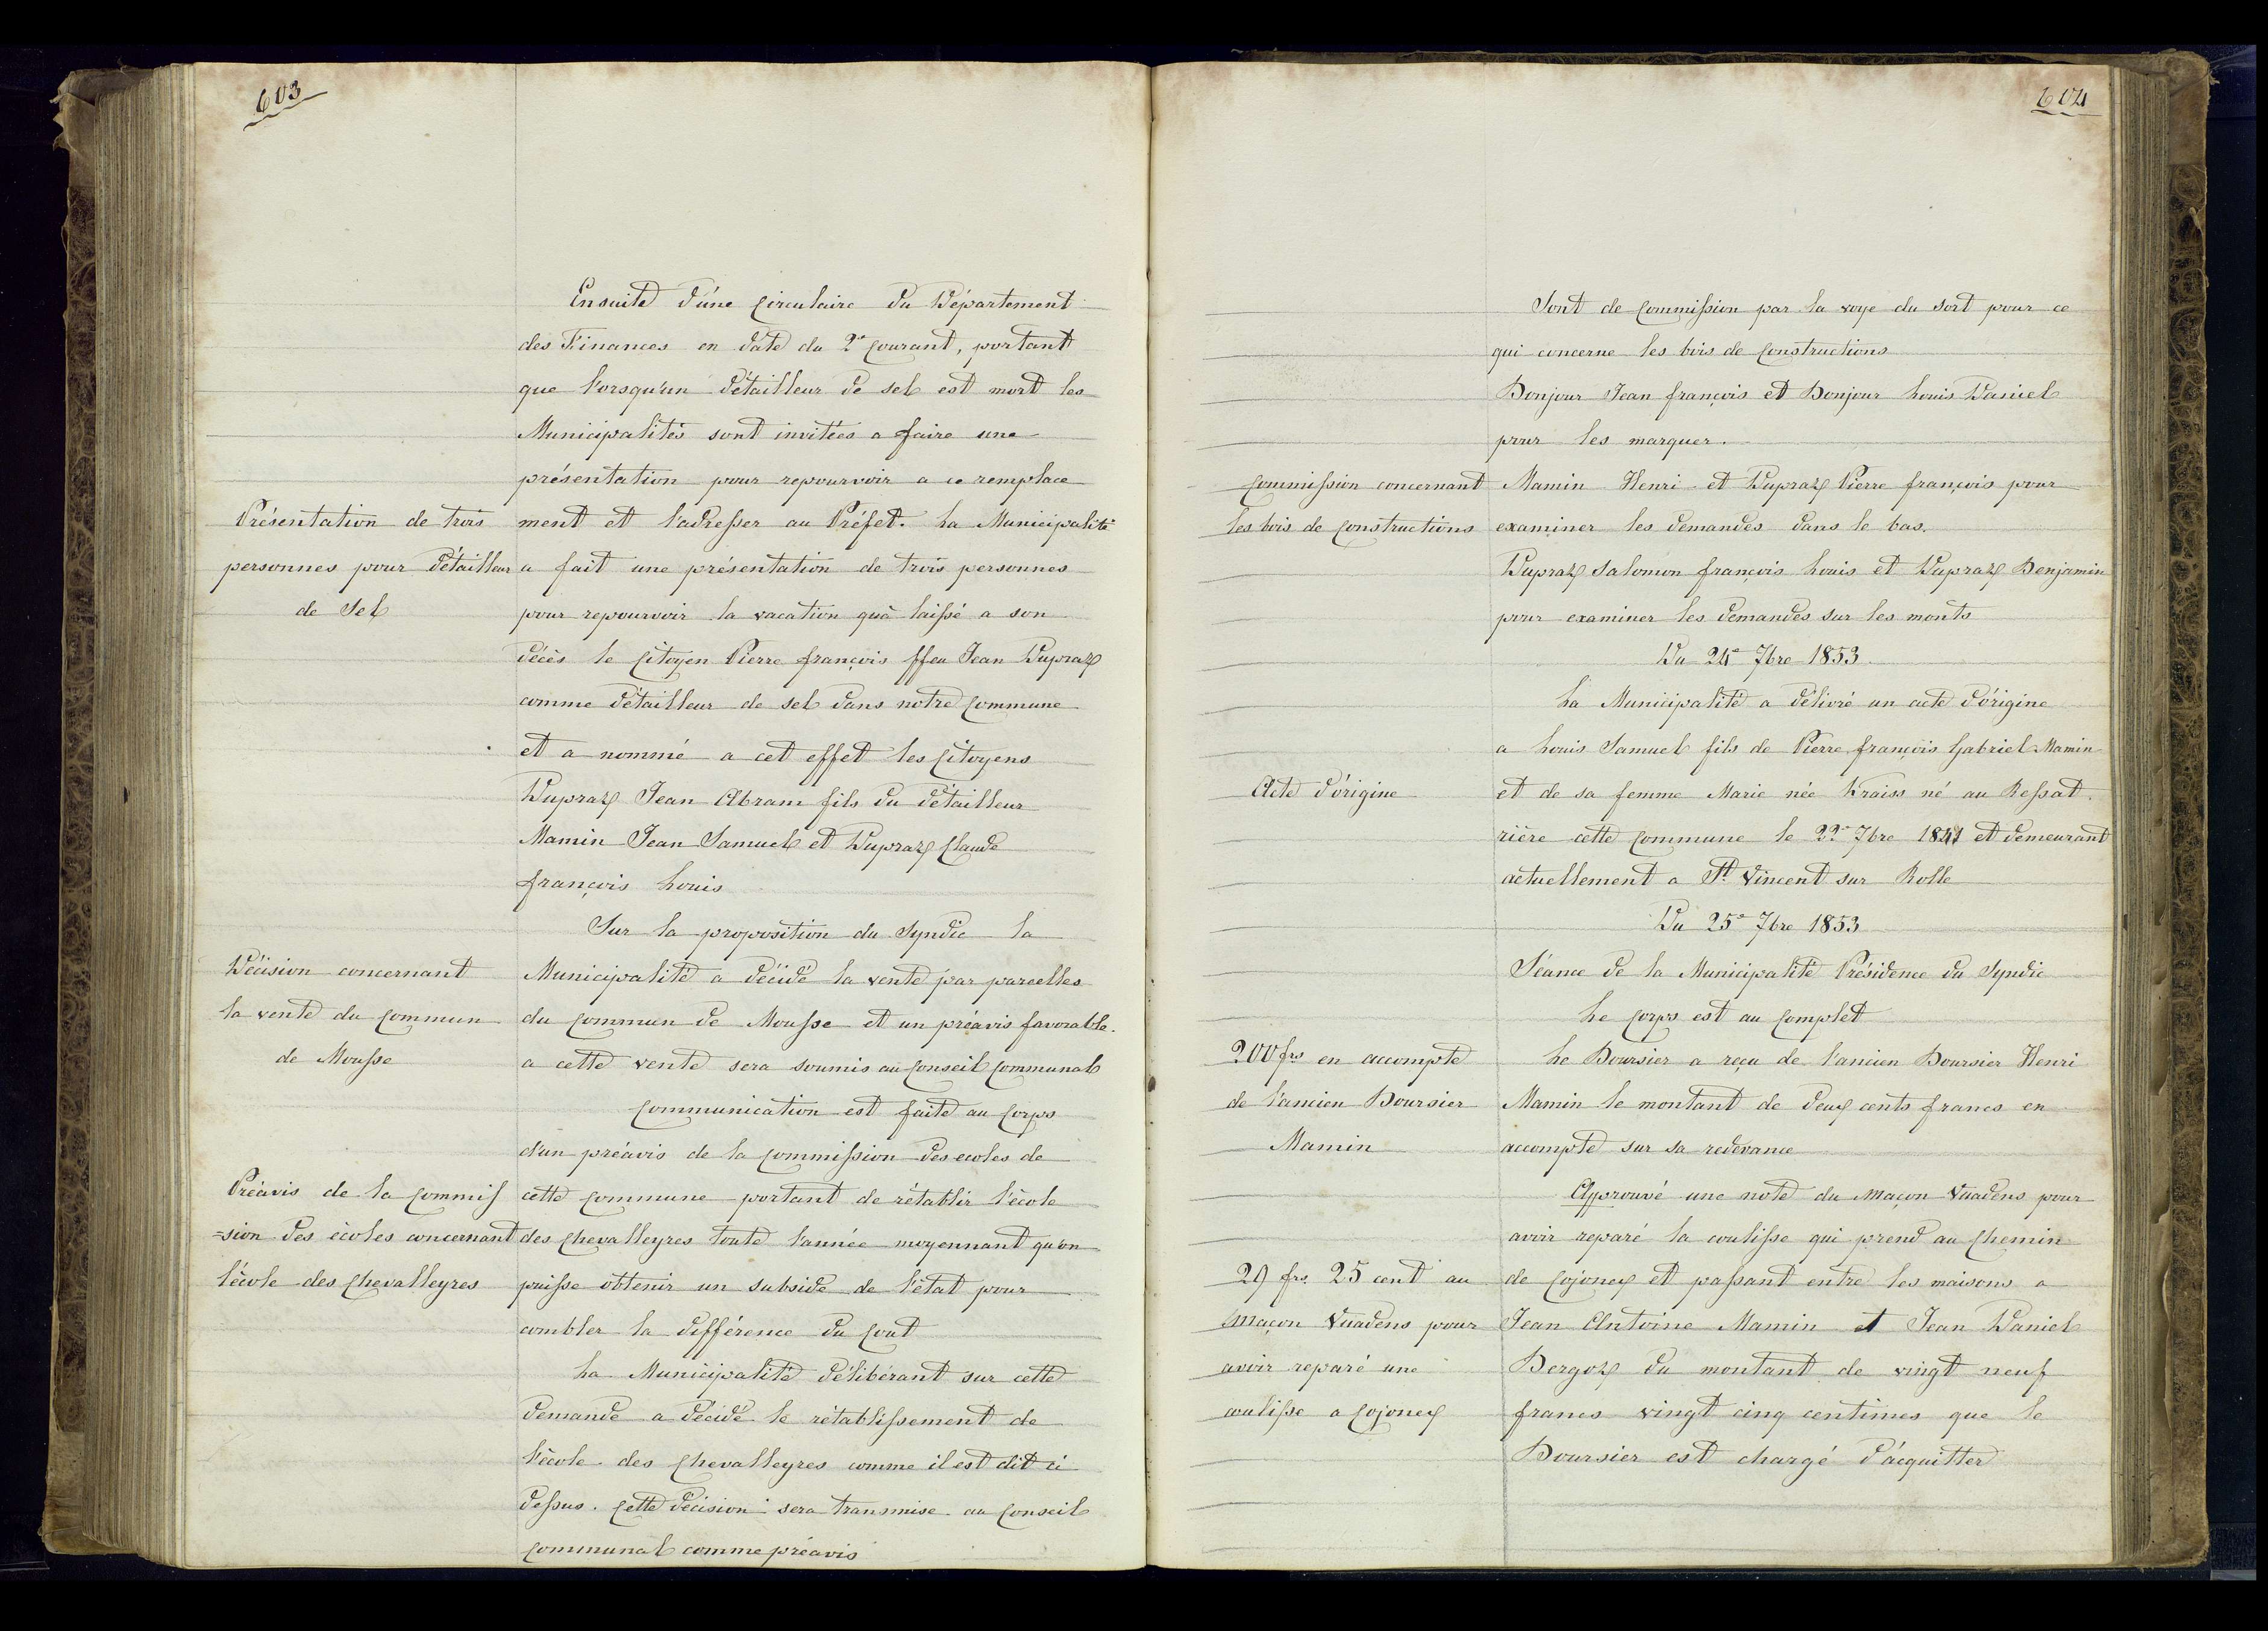 603
Ensuite d'une Circulaire du Département
des Finances en date du 2e Courant, portant
que l'orsqu'un détailleur de sel est mort les
Municipalités sont invitées a faire une
présentation pour repourvoir a ce remplace
Présentation de trois
personnes pour détailleur
de Sel
ment et l'adresser au Préfet. La Municipalité
a fait une présentation de trois personnes
pour repourvoir la vacation qu'a laissé a son
décès le Citoyen Pierre françois ffeu Jean Dupraz
comme détailleur de sel dans notre Commune
et a nommé a cet effet les Citoyens
Dupraz Jean Abram fils du détailleur
Mamin Jean Samuel et Dupraz Claude
françois Louis
Sur la proposition du Syndic la
Décision concernant
la vente du Commun
de Mousse
Municipalité a décidé la vente par parcelles
du Commun de Mousse et un préavis favorable
a cette vente sera soumis au Conseil Communal
Communication est faite au Corps
d'un préavis de la Commission des ecoles de
Préavis de la Commis
=sion des écoles concernant
l'école des Chevalleyres
cette Commune portant de rétablir l'école
des Chevalleyres toute l'année moyennant qu'on
puisse obtenir un subside de l'état pour
combler la différence du Cout
La Municipalité délibérant sur cette
demande a décidé le rétablissement de
l'école des Chevalleyres comme il est dit ci
dessus. Cette décision sera transmise au Conseil
Communal comme préavis
604
Sont de Commission par la voye du sort pour ce
qui concerne les bois de Constructions
Bonjour Jean françois et Bonjour Louis Daniel
pour les marquer.
Commission concernant
les bois de Constructions
Mamin Henri et Dupraz Pierre françois pour
examiner les demandes dans le bas.
Dupraz Salomon françois Louis et Dupraz Benjamin
pour examiner les demandes sur les monts
Du 24e 7bre 1853.
La Municipalité a délivré un acte d'origine
a Louis Samuel fils de Pierre françois Gabriel Mamin
Acte d'origine
et de sa femme Marie née Kraiss né au Bessat
rière cette Commune le 22e 7bre 1841 et demeurant
actuellement a St Vincent sur Rolle
Du 25e 7bre 1853
Séance de la Municipalité Présidence du Syndic
Le Corps est au Complet
200 frs en accompte
de l'ancien Boursier
Mamin
Le Boursier a reçu de l'ancien Boursier Henri
Mamin le montant de deux cents francs en
accompte sur sa redevance
Approuvé une note du Maçon Vuadens pour
avoir reparé la coulisse qui prend au Chemin
29 frs 25 cent au
Maçon Vuadens pour
avoir reparé une
coulisse a Cojonex
de Cojonex et passant entre les maisons a
Jean Antoine Mamin et Jean Daniel
Bergoz du montant de vingt neuf
francs vingt cinq centimes que le
Boursier est chargé d'acquitter